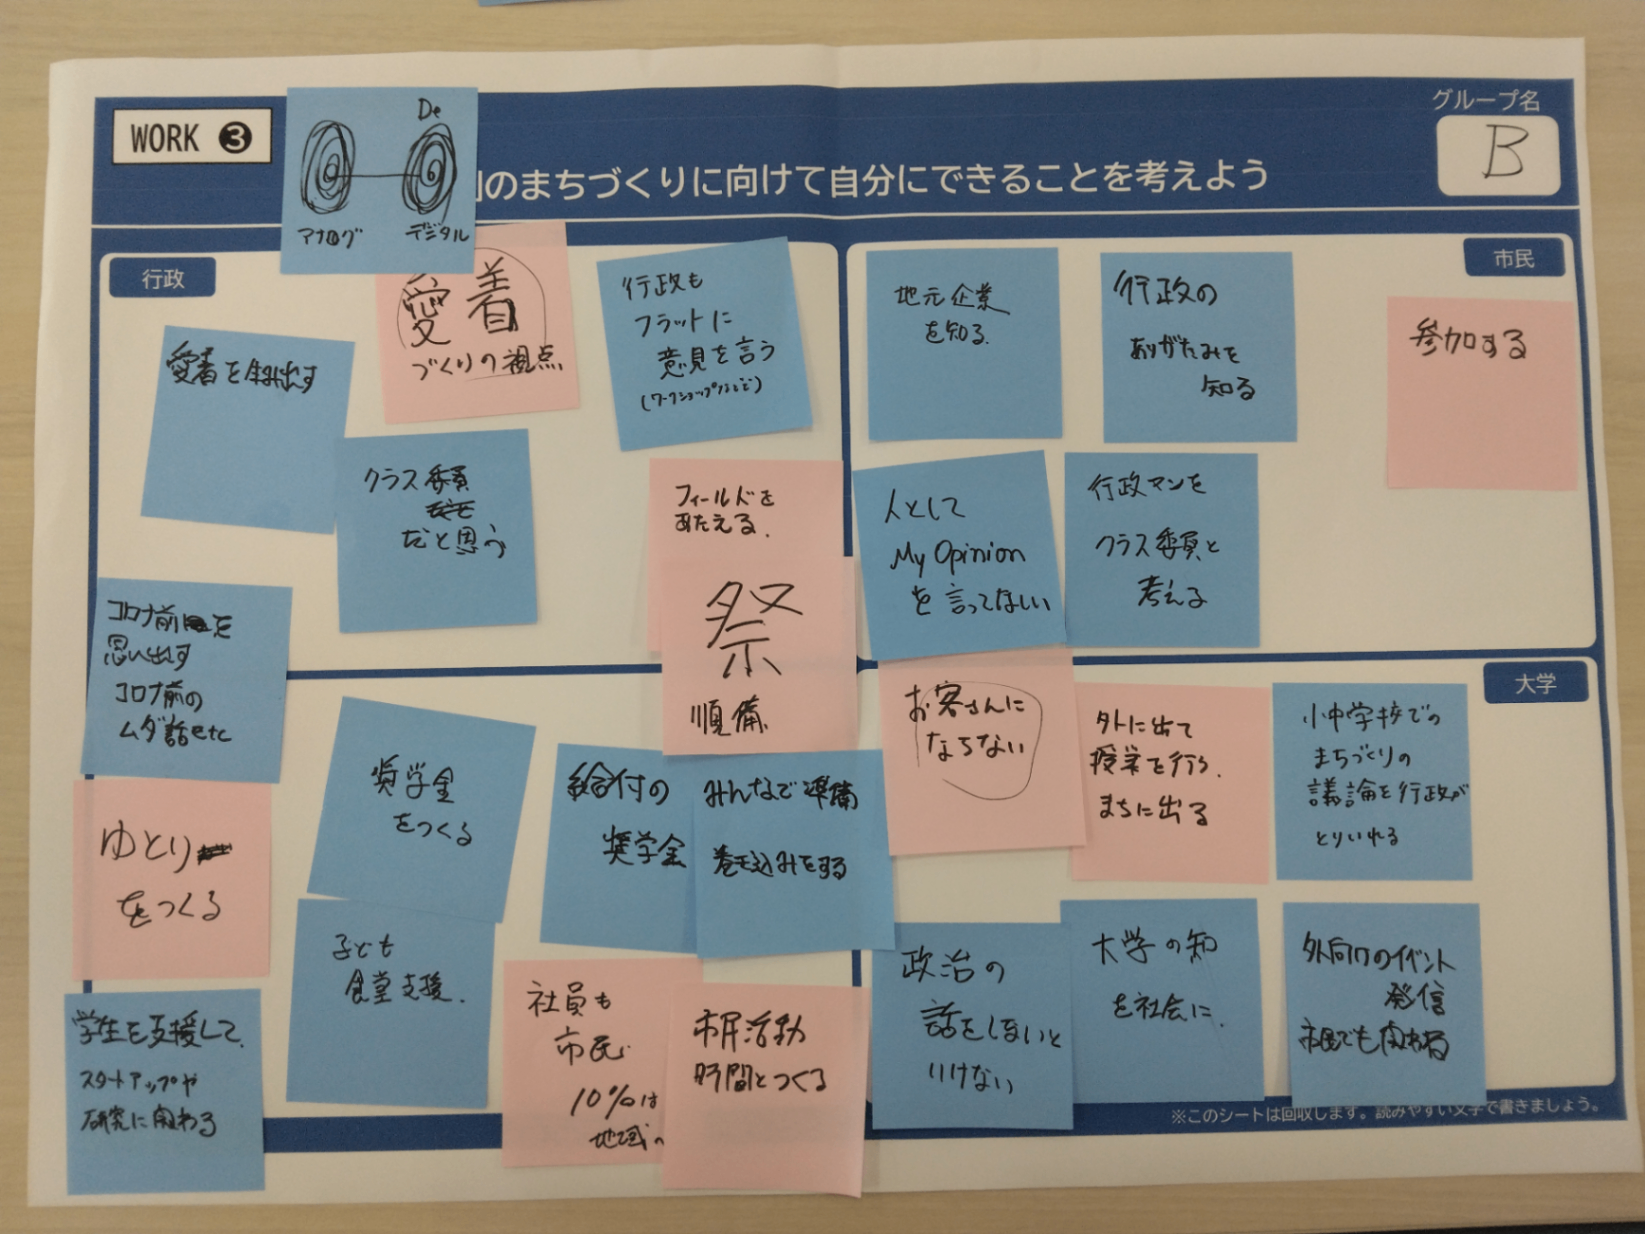 WORK ❸
De
アナログ
デジタル
のまちづくりに向けて自分にできることを考えよう
グループ名
B
行政
愛着
づくりの視点
愛着を生み出す
行政も
フラットに
意見を言う
(ワークショップなどで)
クラス委員
だと思う
フィールドを
あたえる.
祭
順備
コロナ前を
思い出す
コロナ前の
ムダ話etc
市民
地元企業
を知る.
行政の
ありがたみを
知る
参加する
人として
My Opinion
を言ってほしい
行政マンを
クラス委員と
考える
お客さんに
ならない
ゆとり
をつくる
奨学金
をつくる
給付の
奨学金
みんなで準備
巻き込みをする
子ども
食堂支援.
学生を支援して.
スタートアップや
研究に関わる
社員も
市民
10%は
地域へ
市民活動
時間とつくる
大学
外に出て
授業を行う.
まちに出る
小中学校での
まちづくりの
議論を行政が
とりいれる
政治の
話をしないと
いけない
大学の知
を社会に.
外向けのイベント
発信
市民でも関わる
※このシートは回収します。読みやすい文字で書きましょう。